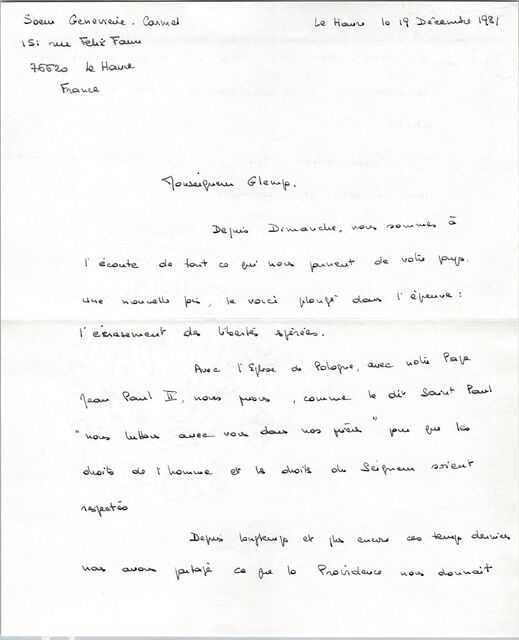 Soeur Geneviève. Carmel
Le Havre le 19 Décembre 1981
151 rue Félix Faure
76620 Le Havre
France
Monseigneur Glemp.
Depuis Dimanche, nous sommes à
l'écoute de tout ce qui nous parvient de votre pays.
une nouvelle fois, le voici plongé dans l'épreuve :
l'écrasement des libertés espérées.
Avec l'Eglise de Pologne, avec notre Pape
Jean Paul II, nous prions, comme le dit Saint Paul
"nous luttons avec vous dans nos prières" pour que les
droits de l'homme et les droits du Seigneur soient
respectés
Depuis longtemp et plus encore ces temp derniers
nous avons partagé ce que la Providence nous donnait